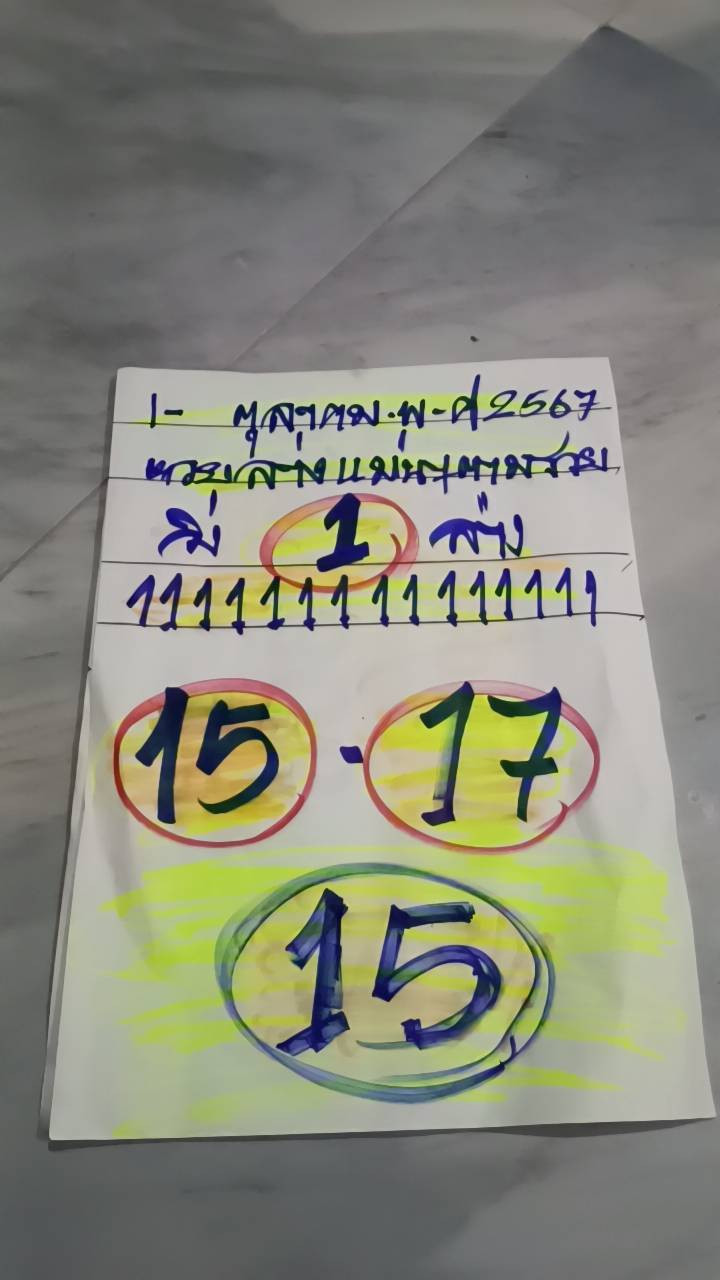 1- ตุลาคม.พ-ศ 2567
หวยล่างแม่นๆตามรวย
วิ่ง 1 ล่าง
111111111111111
15 . 17
15